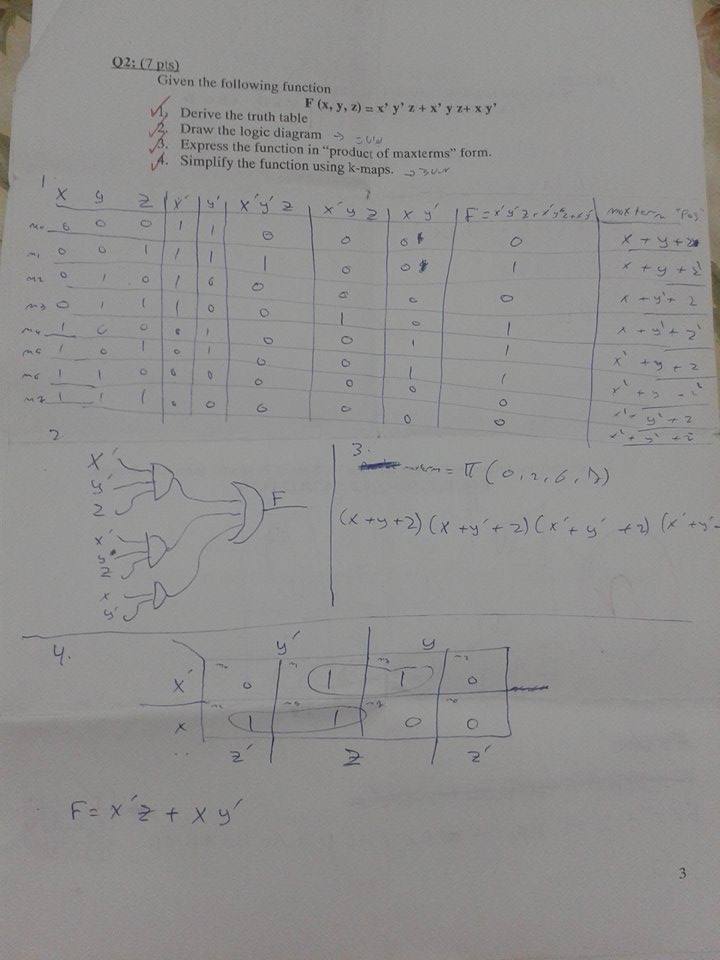 Q2: (7 pts)
Given the following function
F (x, y, z) = x' y' z + x' y z+ x y'
1. Derive the truth table
2. Draw the logic diagram →
3. Express the function in "product of maxterms" form.
4. Simplify the function using k-maps. →
1
x y z x' y' x'y' z x' y z x y' F = x'y'z + x'yz + xy' maxterm "Pos"
m0 0 0 0 1 1 0 0 0 0 x + y + z
m1 0 0 1 1 1 1 0 0 1 x + y + z'
m2 0 1 0 1 0 0 0 0 0 x + y' + z
m3 0 1 1 1 0 0 1 0 1 x + y' + z'
m4 1 0 0 0 1 0 0 1 1 x' + y + z
m5 1 0 1 0 1 0 0 1 1 x' + y + z'
m6 1 1 0 0 0 0 0 0 0 x' + y' + z
m7 1 1 1 0 0 0 0 0 0 x' + y' + z'
2
x'
y'
z
F
x'
y
z
x
y'
3.
maxterm = π (0, 2, 6, 7)
(x + y + z) (x + y' + z) (x' + y' + z) (x' + y' +
4.
y' y
x' 0 1 1 0
x 1 1 0 0
z' z z'
F = x'z + x y'
3